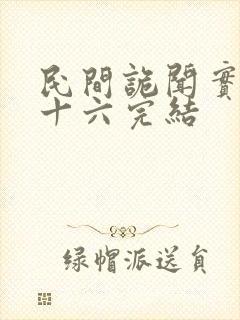 民間詭聞實
十六完結
绿帽派送員